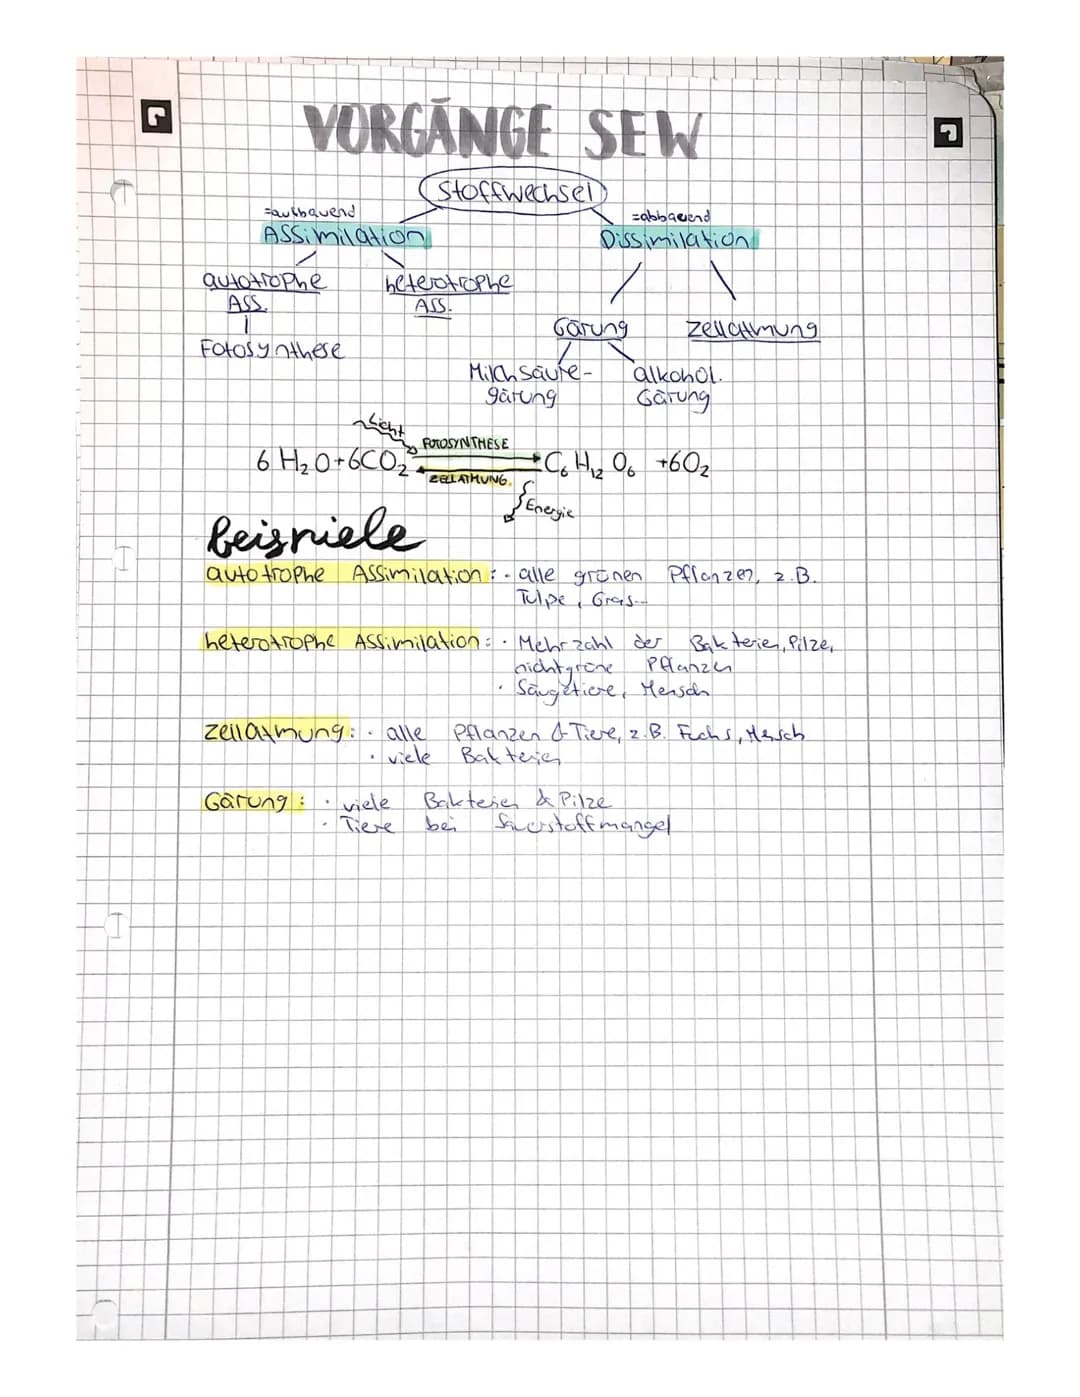 VORGÄNGE SEW
Stoffwechsel
=aufbauend
=abbauend
ASSimilation
Dissimilation
autotrophe
heterotrophe
ASS.
ASS.
Gärung
Zellatmung
Fotosynthese
Milchsäure-
alkohol.
gärung
Gärung
Licht
FOTOSYNTHESE
6 H₂O+6CO₂
C₆ H₁₂ O₆ +6O₂
ZELLATMUNG
Energie
Beispiele
autotrophe Assimilation: · alle grünen Pflanzen, z.B.
Tulpe, Gras...
heterotrophe Assimilation: · Mehrzahl der Bakterien, Pilze,
nichtgrüne Pflanzen
· Säugetiere, Mensch
Zellatmung: · alle Pflanzen & Tiere, z.B. Fuchs, Mensch
· viele Bakterien
Gärung: · viele Bakterien & Pilze
· Tiere bei Sauerstoffmangel